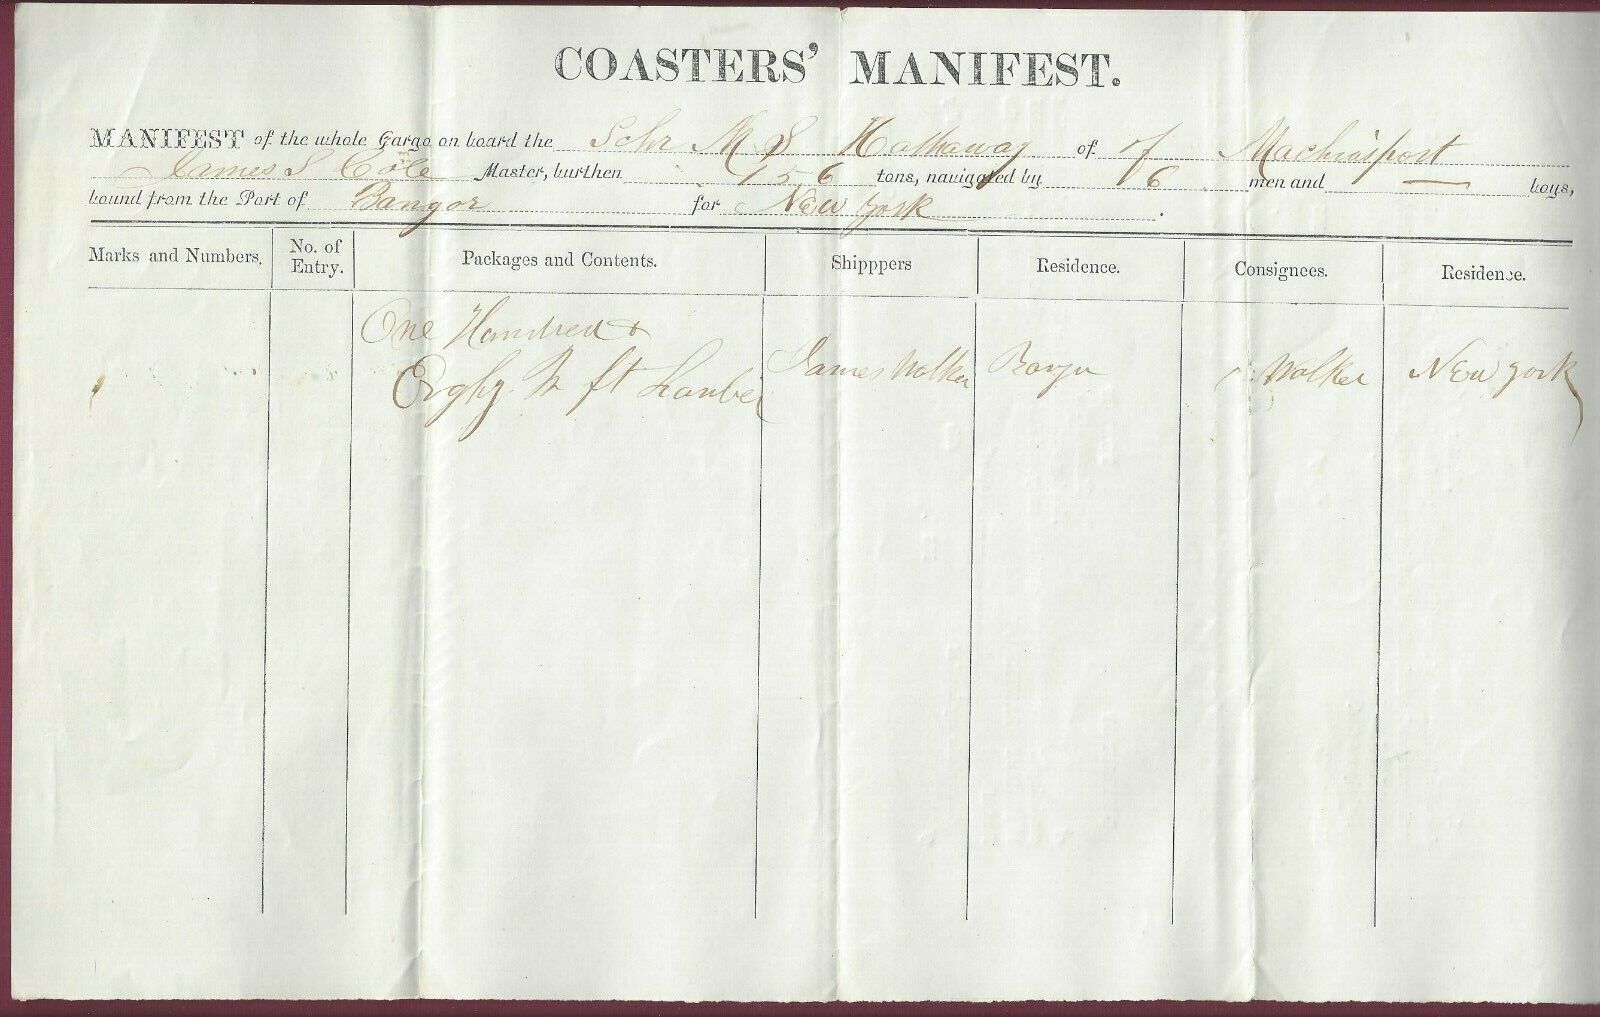 COASTERS' MANIFEST.
MANIFEST of the whole Cargo on board the Schr M S Hathaway of of Machiasport
James S Cole Master, burthen 156 tons, navigated by 6 men and — boys,
bound from the Port of Bangor for New York .
Marks and Numbers. No. of Entry. Packages and Contents. Shipppers Residence. Consignees. Residence.
One Hundred &
Eighty M ft Lumber James Walker Bangor Walker New York